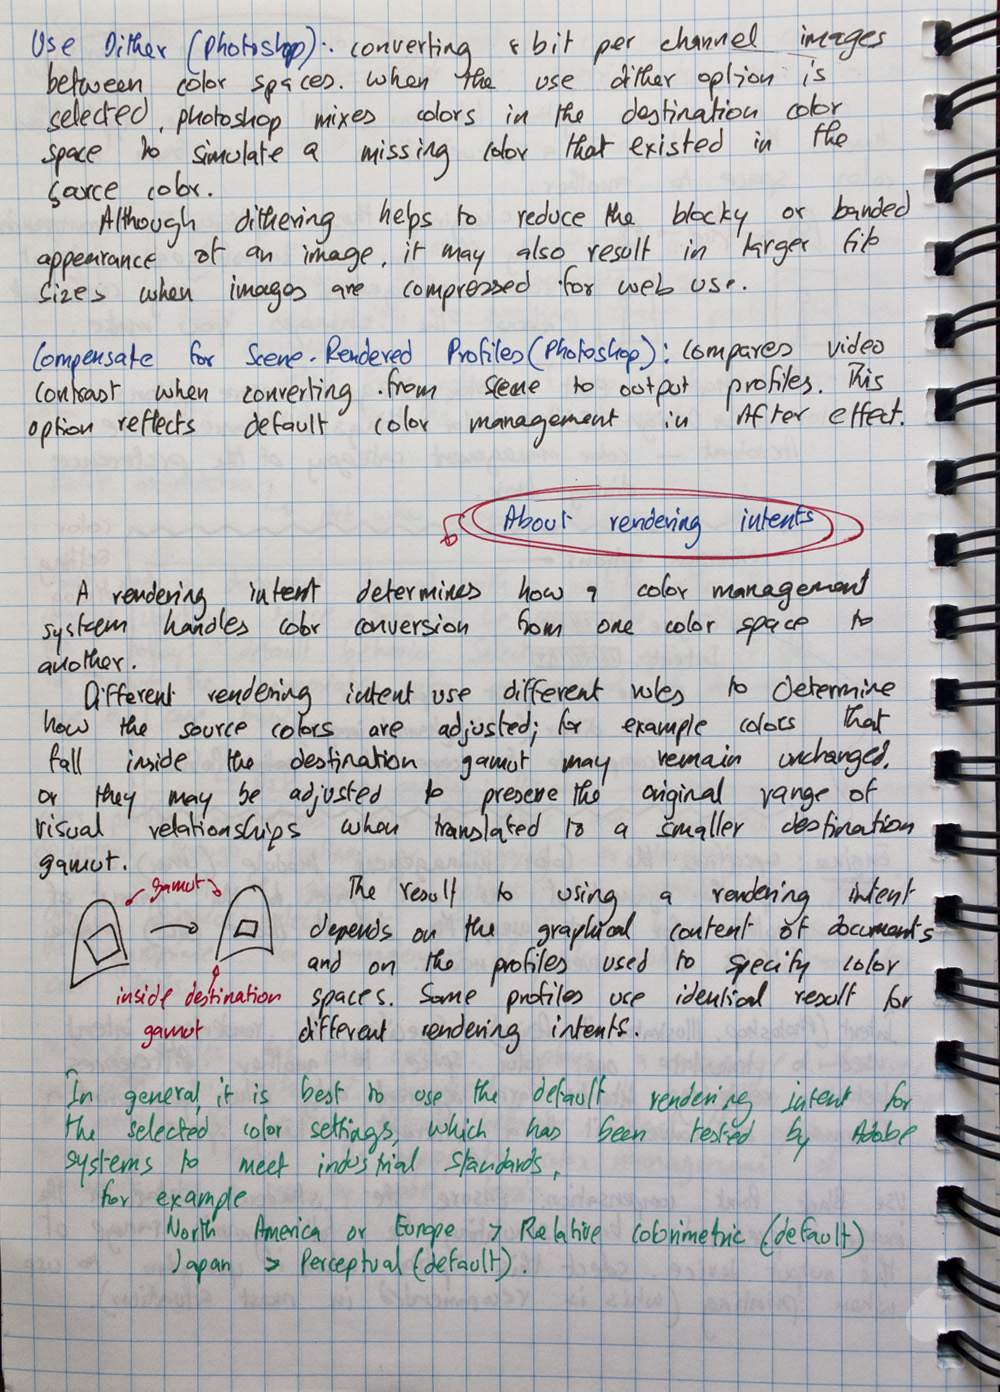 Use Dither (Photoshop): converting 8 bit per channel images
between color spaces. when the use dither option is
selected, photoshop mixes colors in the destination color
space to simulate a missing color that existed in the
source color.
Although dithering helps to reduce the blocky or banded
appearance of an image, it may also result in larger file
sizes when images are compressed for web use.
Compensate for Scene-Rendered Profiles (Photoshop): compares video
contrast when converting from scene to output profiles. This
option reflects default color management in After effect.
About rendering intents
A rendering intent determines how a color management
system handles color conversion from one color space to
another.
Different rendering intent use different rules to determine
how the source colors are adjusted; for example colors that
fall inside the destination gamut may remain unchanged,
or they may be adjusted to preserve the original range of
visual relationships when translated to a smaller destination
gamut.
gamut
The result to using a rendering intent
depends on the graphical content of documents
and on the profiles used to specify color
inside destination
spaces. Some profiles use identical result for
gamut
different rendering intents.
In general, it is best to use the default rendering intent for
the selected color settings, which has been tested by Adobe
systems to meet industrial standards,
for example
North America or Europe > Relative colorimetric (default)
Japan > Perceptual (default).